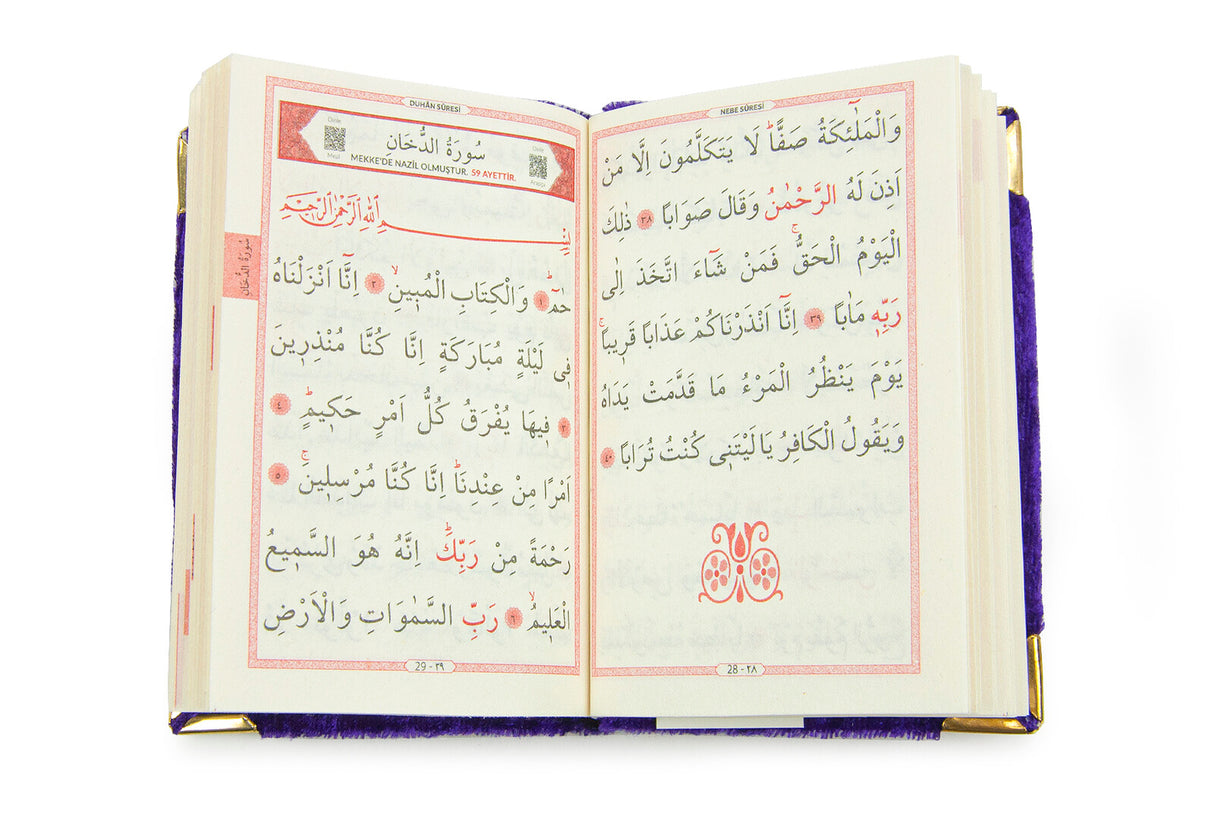 NEBE SÛRESİ
وَالْمَلٰٓئِكَةُ صَفًّاۜ لَا يَتَكَلَّمُونَ اِلَّا مَنْ
اَذِنَ لَهُ الرَّحْمٰنُ وَقَالَ صَوَابًا ٣٨ ذٰلِكَ
الْيَوْمُ الْحَقُّۚ فَمَنْ شَٓاءَ اتَّخَذَ اِلٰى
رَبِّه۪ مَاٰبًا ٣٩ اِنَّٓا اَنْذَرْنَاكُمْ عَذَابًا قَر۪يبًاۚ
يَوْمَ يَنْظُرُ الْمَرْءُ مَا قَدَّمَتْ يَدَاهُ
وَيَقُولُ الْكَافِرُ يَا لَيْتَن۪ي كُنْتُ تُرَابًا ٤٠
28 - ٢٨
DUHÂN SÛRESİ
Dinle
Meal
سُورَةُ الدُّخَانِ
MEKKE'DE NAZİL OLMUŞTUR. 59 AYETTİR.
Dinle
Arapça
بِسْمِ اللّٰهِ الرَّحْمٰنِ الرَّح۪يمِ
سُورَةُ الدُّخَانِ
حٰمٓۜ ١ وَالْكِتَابِ الْمُب۪ينِۙ ٢ اِنَّٓا اَنْزَلْنَاهُ
ف۪ي لَيْلَةٍ مُبَارَكَةٍ اِنَّا كُنَّا مُنْذِر۪ينَ
٣ ف۪يهَا يُفْرَقُ كُلُّ اَمْرٍ حَك۪يمٍۜ ٤
اَمْرًا مِنْ عِنْدِنَاۜ اِنَّا كُنَّا مُرْسِل۪ينَۚ ٥
رَحْمَةً مِنْ رَبِّكَۜ اِنَّهُ هُوَ السَّم۪يعُ
الْعَل۪يمُۙ ٦ رَبِّ السَّمٰوَاتِ وَالْاَرْضِ
29 - ٢٩